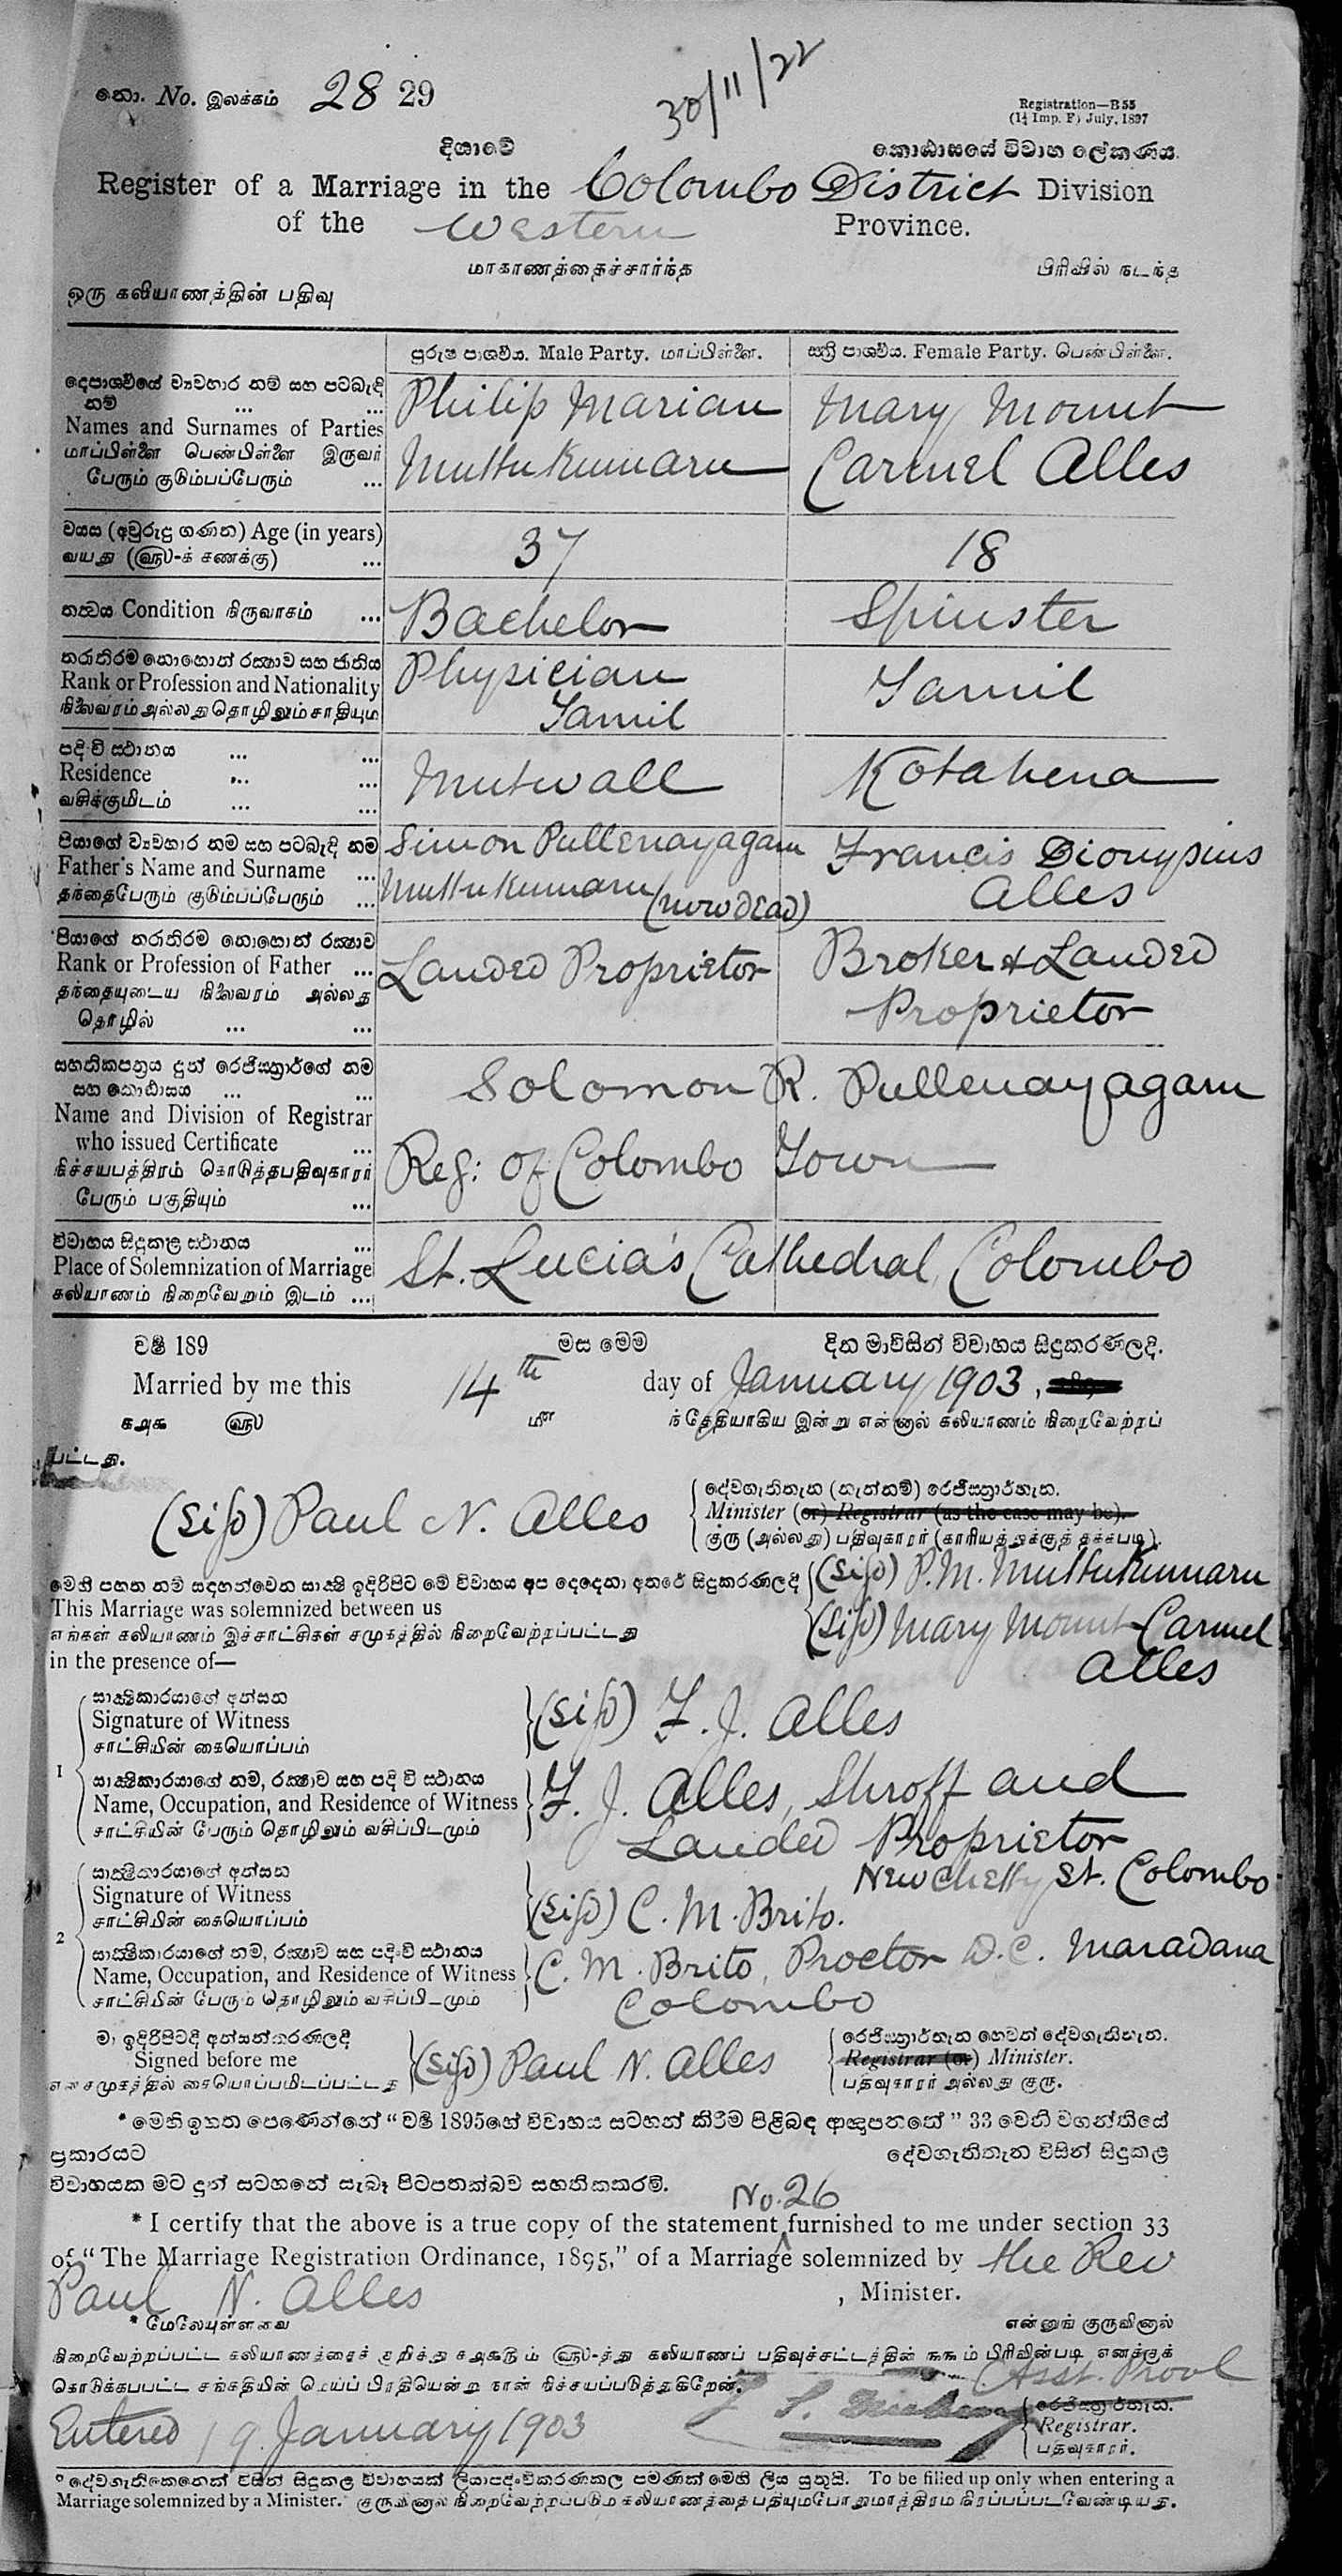 නො. No. இலக்கம் 28 29
30/11/22
Registration—B 55
(1½ Imp. F) July, 1897
දිසාවේ කොඨාසයේ විවාහ ලේකණය.
Register of a Marriage in the Colombo District Division
of the Western Province.
மாகாணத்தைச்சார்ந்த பிரிவில் நடந்த
ஒரு கலியாணத்தின் பதிவு
පුරුෂ පාශ්වීය. Male Party. மாப்பிள்ளை. ස්ත්‍රී පාශ්වීය. Female Party. பெண்பிள்ளை.
දෙපාශ්වීයේ ව්‍යවහාර නම් සහ පටබැඳි
නම් ... ...
Names and Surnames of Parties
மாப்பிள்ளை பெண்பிள்ளை இருவர்
பேரும் குடும்பப்பேரும் ...
Philip Marian
Muttukumaru
Mary Mount
Carmel Alles
වයස (අවුරුදු ගණන) Age (in years)
வயது (௵-க் கணக்கு) ...
37
18
තත්වය Condition நிருவாகம் ...
Bachelor
Spinster
තරාතිරම නොහොත් රක්ෂාව සහ ජාතිය
Rank or Profession and Nationality
நிலைவரம் அல்லது தொழிலும் சாதியும்
Physician
Tamil
Tamil
පදිංචි ස්ථානය ... ...
Residence ... ...
வசிக்குமிடம் ... ...
Mutwall
Kotahena
පියාගේ ව්‍යවහාර නම සහ පටබැඳි නම
Father's Name and Surname ...
தந்தைபேரும் குடும்பப்பேரும் ...
Simon Pullenayagam
Muttukumaru (now dead)
Francis Dionysius
Alles
පියාගේ තරාතිරම නොහොත් රක්ෂාව
Rank or Profession of Father ...
தந்தையுடைய நிலைவரம் அல்லது
தொழில் ... ...
Landed Proprietor
Broker & Landed
Proprietor
සහතිකපත්‍රය දුන් රෙජිස්ත්‍රාර්ගේ නම
සහ කොඨාසය ... ...
Name and Division of Registrar
who issued Certificate ...
நிச்சயபத்திரம் கொடுத்தபதிவுகாரர்
பேரும் பகுதியும் ...
Solomon R. Pullenayagam
Reg: of Colombo Town
විවාහය සිදුකළ ස්ථානය ...
Place of Solemnization of Marriage
கலியாணம் நிறைவேறும் இடம் ...
St. Lucia's Cathedral, Colombo
වර්‍ෂ 189 මස මෙම දින මාවිසින් විවාහය සිදුකරණලදි.
Married by me this 14th day of January 1903,
௧௮௯ ௵ ௴ ந் தேதியாகிய இன்று என்னால் கலியாணம் நிறைவேற்றப்
பட்டது.
(Sigd) Paul N. Alles
දේවගැතිතැන (නැත්නම්) රෙජිස්ත්‍රාර්තැන.
Minister (or) Registrar (as the case may be).
குரு (அல்லது) பதிவுகாரர் (காரியத்துக்குத் தக்கபடி).
මෙහි පහත නම් සඳහන්වෙන සාක්ෂි ඉදිරිපිට මේ විවාහය අප දෙදෙනා අතරේ සිදුකරණලදි
This Marriage was solemnized between us
எங்கள் கலியாணம் இச்சாட்சிகள் சமுகத்தில் நிறைவேற்றப்பட்டது
in the presence of—
(Sigd) P. M. Muttukumaru
(Sigd) Mary Mount Carmel
Alles
1
සාක්ෂිකාරයාගේ අත්සන
Signature of Witness
சாட்சியின் கையொப்பம்
(Sigd) F. J. Alles
සාක්ෂිකාරයාගේ නම, රක්ෂාව සහ පදිංචි ස්ථානය
Name, Occupation, and Residence of Witness
சாட்சியின் பேரும் தொழிலும் வசிப்பிடமும்
F. J. Alles, Shroff and
Landed Proprietor
New Chetty St. Colombo
2
සාක්ෂිකාරයාගේ අත්සන
Signature of Witness
சாட்சியின் கையொப்பம்
(Sigd) C. M. Brito.
සාක්ෂිකාරයාගේ නම, රක්ෂාව සහ පදිංචි ස්ථානය
Name, Occupation, and Residence of Witness
சாட்சியின் பேரும் தொழிலும் வசிப்பிடமும்
C. M. Brito, Proctor D.C. Maradana
Colombo
මා ඉදිරිපිටදී අත්සන්කරණලදී
Signed before me
என் சமுகத்தில் கையொப்பமிடப்பட்டது
(Sigd) Paul N. Alles
රෙජිස්ත්‍රාර්තැන හෙවත් දේවගැතිතැන.
Registrar (or) Minister.
பதிவுகாரர் அல்லது குரு.
* මෙහි ඉහත පෙණෙන්නේ “වර්‍ෂ 1895හේ විවාහය සටහන් කිරීම පිළිබඳ ආඥාපනතේ” 33 වෙනි වගන්තියේ
ප්‍රකාරයට දේවගැතිතැන විසින් සිදුකළ
විවාහයක මට දුන් සටහනේ සැබෑ පිටපතක්බව සහතිකකරමි.
No. 26
* I certify that the above is a true copy of the statement furnished to me under section 33
of “The Marriage Registration Ordinance, 1895,” of a Marriage solemnized by the Rev
Paul N. Alles , Minister.
* மேலேயுள்ளவை என்னுங் குருவினால்
நிறைவேற்றப்பட்ட கலியாணத்தைக் குறித்து ௧௮௯௫ ம் ௵-த்து கலியாணப் பதிவுச்சட்டத்தின் ௩௩ ம் பிரிவின்படி எனக்குக்
கொடுக்கப்பட்ட சங்கதியின் மெய்ப் பிரதியென்று நான் நிச்சயப்படுத்துகிறேன்.
Asst. Provl
Entered 19 January 1903
රෙජිස්ත්‍රාර්තැන.
Registrar.
பதிவுகாரர்.
* දේවගැතිකෙනෙක් විසින් සිදුකල විවාහයක් ලියාපදිංචිකරණකල පමණක් මෙහි ලිය යුතුයි. To be filled up only when entering a
Marriage solemnized by a Minister. குருவினால் நிறைவேற்றப்படும் கலியாணத்தை பதியும்போதுமாத்திரம் நிரப்பப்படவேண்டியது.